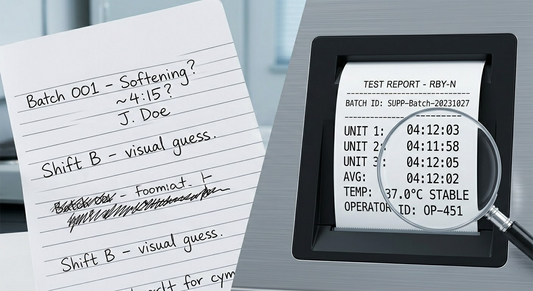 Batch 001 – Softening?
~4:15?
J. Doe
Shift B – visual guess.
Shift B – visual guess.
for cym
TEST REPORT - RBY-N
BATCH ID: SUPP-Batch-20231027
UNIT 1: 04:12:03
UNIT 2: 04:11:58
UNIT 3: 04:12:05
AVG: 04:12:02
TEMP: 37.0°C STABLE
OPERATOR ID: OP-451